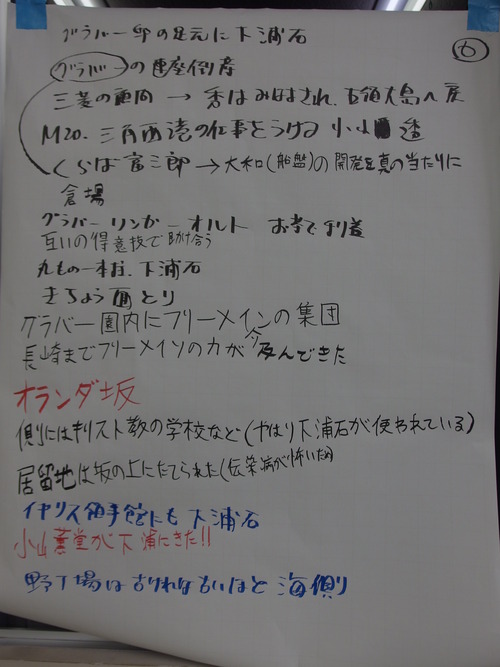 グラバー邸の足元に下浦石
6
グラバーの連座倒産
三菱の顧問 → 秀はみはなされ、五領大島へ戻
M20. 三角西港の仕事をうける 小山 秀
くらば富三郎 → 大和(船盤)の開発を真の当たりに
倉場
グラバー リンガー オルト
互いの得意技で助け合う
丸もの一本石. 下浦石
きちょう面とり
グラバー園内にフリーメイソンの集団
長崎までフリーメイソンの力が今及んできた
オランダ坂
側にはキリスト教の学校など(やはり下浦石が使われている)
居留地は坂の上にたてられた(伝染病が怖いため
イギリス領事館にも下浦石
小山薫堂が下浦にきた!!
野丁場は 海側